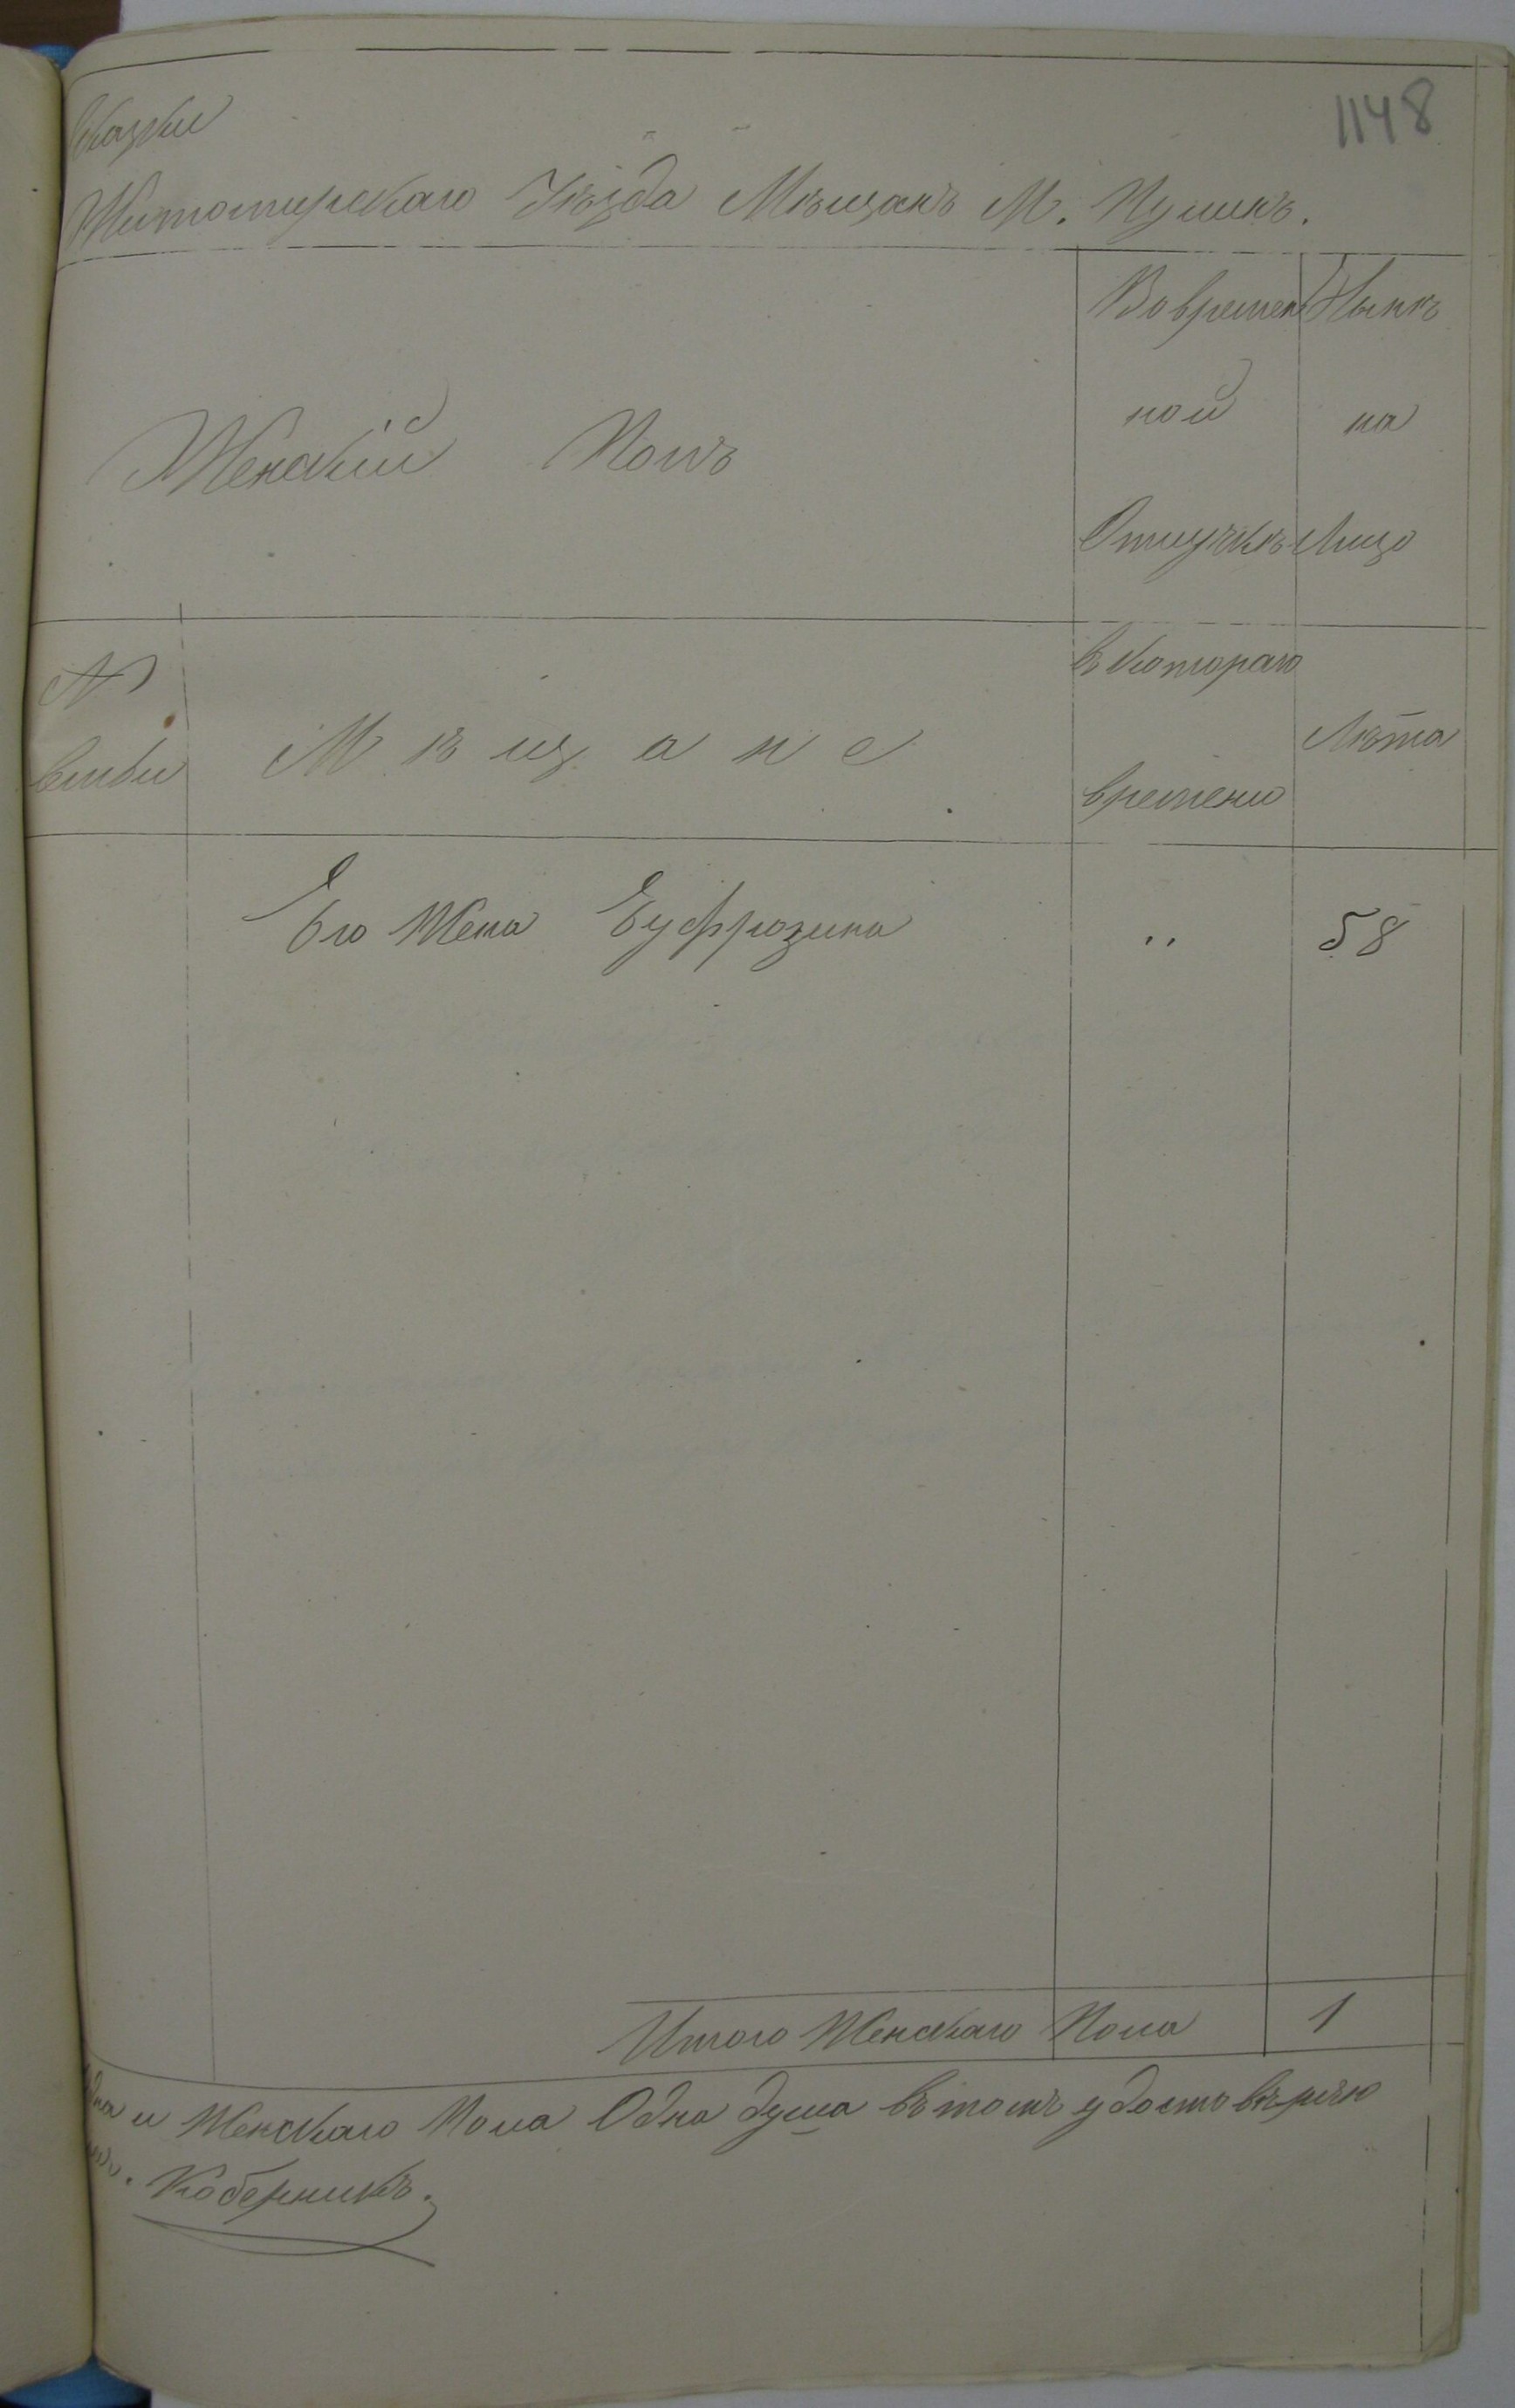 1148
Сказки
Житомирскаго Уѣзда Мѣщанъ М. Пулинъ.
Женскій Полъ
Во времен
ной
Отлучкѣ
Нынѣ
на
Лицо
№
Семьи
Мѣщане
съ котораго
времени
Лѣта
Его Жена Еуфрозина " 58
Итого Женскаго Пола 1
и Женскаго Пола Одна душа въ томъ удостовѣряю
Коберникъ.